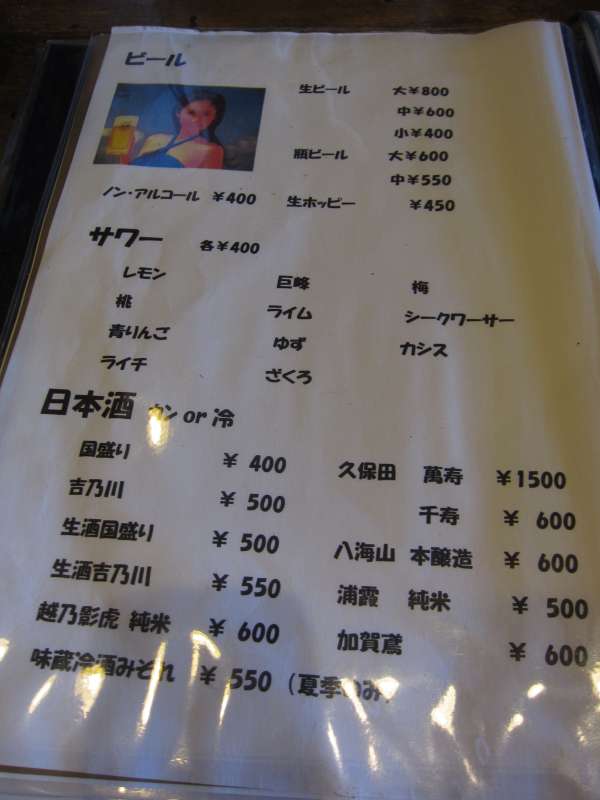 ビール
生ビール 大￥800
中￥600
小￥400
瓶ビール 大￥600
中￥550
ノン・アルコール ￥400 生ホッピー ￥450
サワー 各￥400
レモン 巨峰 梅
桃 ライム シークワーサー
青りんご ゆず カシス
ライチ ざくろ
日本酒 カン or 冷
国盛り ￥ 400 久保田 萬寿 ￥1500
吉乃川 ￥ 500 千寿 ￥ 600
生酒国盛り ￥ 500 八海山 本醸造 ￥ 600
生酒吉乃川 ￥ 550 浦霞 純米 ￥ 500
越乃影虎 純米 ￥ 600 加賀鳶 ￥ 600
味蔵冷酒みぞれ ￥ 550 (夏季のみ)